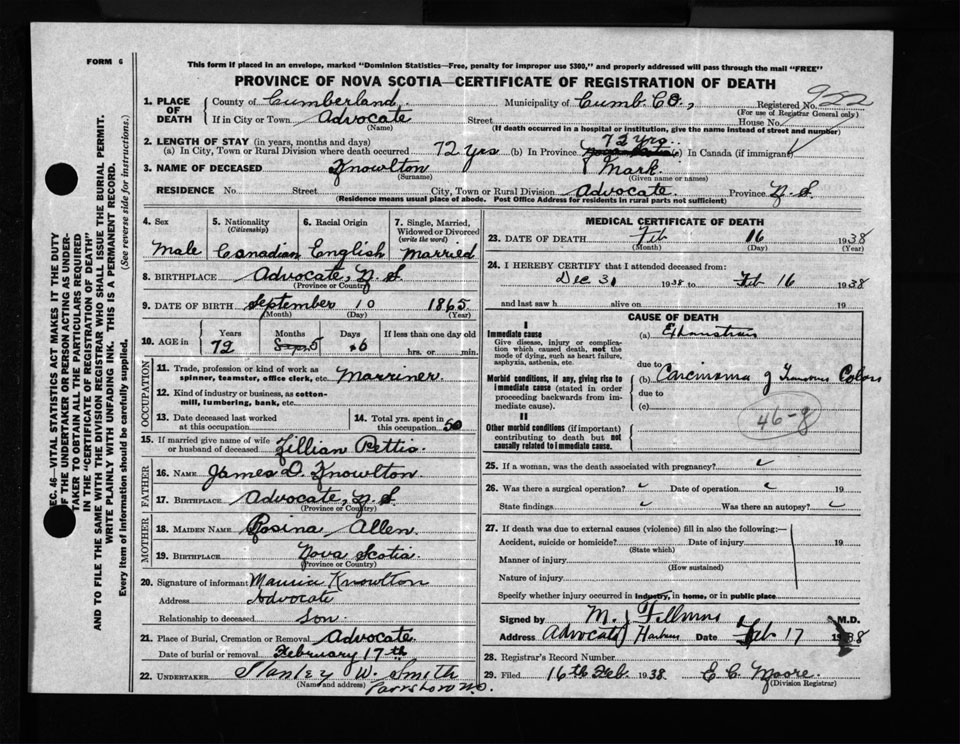 FORM 6
This form if placed in an envelope, marked "Dominion Statistics—Free, penalty for improper use $300," and properly addressed will pass through the mail "FREE"
PROVINCE OF NOVA SCOTIA—CERTIFICATE OF REGISTRATION OF DEATH
922
1. PLACE OF DEATH County of Cumberland, Municipality of Cumb. CO., Registered No.
(For use of Registrar General only)
If in City or Town Advocate Street House No.
(Name) (If death occurred in a hospital or institution, give the name instead of street and number)
2. LENGTH OF STAY (in years, months and days)
(a) In City, Town or Rural Division where death occurred 72 yrs (b) In Province 72 yrs. (c) In Canada (if immigrant)
3. NAME OF DECEASED Knowlton Mark.
(Surname) (Given name or names)
RESIDENCE No. Street City, Town or Rural Division Advocate. Province N.S.
(Residence means usual place of abode. Post Office Address for residents in rural parts not sufficient)
4. Sex 5. Nationality (Citizenship) 6. Racial Origin 7. Single, Married, Widowed or Divorced (write the word)
Male Canadian English Married
8. BIRTHPLACE Advocate, N.S.
(Province or Country)
9. DATE OF BIRTH September 10 1865
(Month) (Day) (Year)
10. AGE in Years Months Days If less than one day old
72 5 6 hrs. or min.
OCCUPATION
11. Trade, profession or kind of work as spinner, teamster, office clerk, etc. Marriner.
12. Kind of industry or business, as cotton-mill, lumbering, bank, etc.
13. Date deceased last worked at this occupation 14. Total yrs. spent in this occupation 50
15. If married give name of wife or husband of deceased Lillian Pettis.
FATHER
16. NAME James D. Knowlton
17. BIRTHPLACE Advocate, N.S.
(Province or Country)
MOTHER
18. MAIDEN NAME Rosina Allen.
19. BIRTHPLACE Nova Scotia.
(Province or Country)
20. Signature of informant Knowlton
Address Advocate
Relationship to deceased Son.
21. Place of Burial, Cremation or Removal Advocate.
Date of burial or removal February 17th
22. UNDERTAKER Stanley W. Smith
(Name and address) Parrsboro N.S.
MEDICAL CERTIFICATE OF DEATH
23. DATE OF DEATH Feb 16 1938
(Month) (Day) (Year)
24. I HEREBY CERTIFY that I attended deceased from:
Dec 31 1938 to Feb 16 1938
and last saw h alive on 19
CAUSE OF DEATH
I
Immediate cause (a) Exhaustion
Give disease, injury or complication which caused death, not the mode of dying, such as heart failure, asphyxia, asthenia, etc.
due to
Morbid conditions, if any, giving rise to immediate cause (stated in order proceeding backwards from immediate cause). (b) Carcinoma of Colon
due to
(c)
46-g
II
Other morbid conditions (if important) contributing to death but not causally related to immediate cause.
25. If a woman, was the death associated with pregnancy?
26. Was there a surgical operation? Date of operation 19
State findings Was there an autopsy?
27. If death was due to external causes (violence) fill in also the following:—
Accident, suicide or homicide? Date of injury 19
(State which)
Manner of injury
(How sustained)
Nature of injury
Specify whether injury occurred in industry, in home, or in public place
Signed by M. J. Fillmore M.D.
Address Advocate Harbour Date Feb 17 1938
28. Registrar's Record Number
29. Filed 16th Feb. 1938 E. C. Moore.
(Division Registrar)
SEC. 46—VITAL STATISTICS ACT MAKES IT THE DUTY OF THE UNDERTAKER OR PERSON ACTING AS UNDERTAKER TO OBTAIN ALL THE PARTICULARS REQUIRED IN THE "CERTIFICATE OF REGISTRATION OF DEATH" AND TO FILE THE SAME WITH THE DIVISION REGISTRAR WHO SHALL ISSUE THE BURIAL PERMIT.
WRITE PLAINLY WITH UNFADING INK. THIS IS A PERMANENT RECORD.
Every item of Information should be carefully supplied. (See reverse side for instructions.)